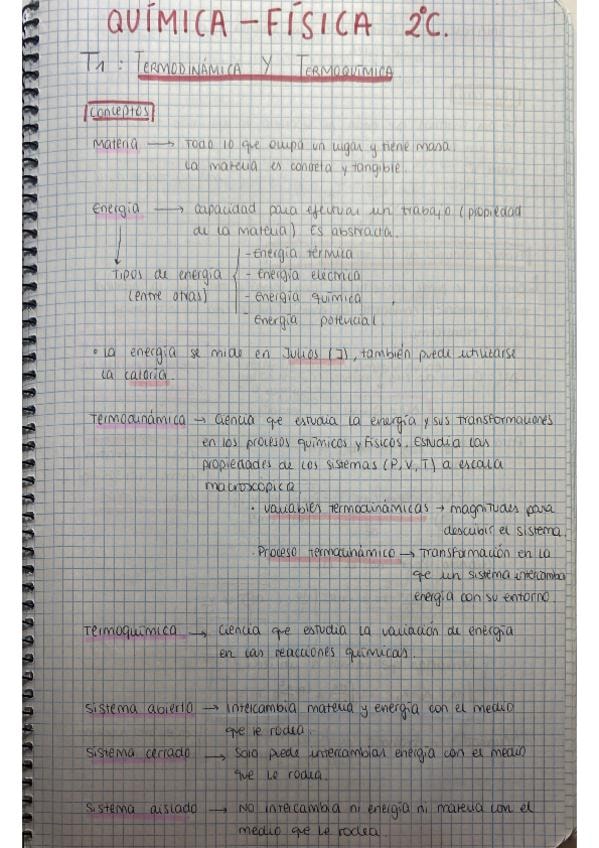 QUÍMICA - FÍSICA 2ºC.
T1: TERMODINÁMICA Y TERMOQUÍMICA
Conceptos
Materia → Todo lo que ocupa un lugar y tiene masa.
La materia es concreta y tangible.
Energía → capacidad para efectuar un trabajo (propiedad
de la materia) Es abstracta.
- energía térmica
Tipos de energía - energía eléctrica
(entre otras) - energía química
- energía potencial.
• La energía se mide en Julios (J), también puede utilizarse
la caloría.
Termodinámica → Ciencia que estudia la energía y sus transformaciones
en los procesos químicos y físicos. Estudia las
propiedades de los sistemas (P, V, T) a escala
macroscópica.
• variables termodinámicas → magnitudes para
describir el sistema.
• Proceso termodinámico → Transformación en la
que un sistema intercambia
energía con su entorno.
Termoquímica → Ciencia que estudia la variación de energía
en las reacciones químicas.
Sistema abierto → Intercambia materia y energía con el medio
que le rodea.
Sistema cerrado → Solo puede intercambiar energía con el medio
que le rodea.
Sistema aislado → No intercambia ni energía ni materia con el
medio que le rodea.